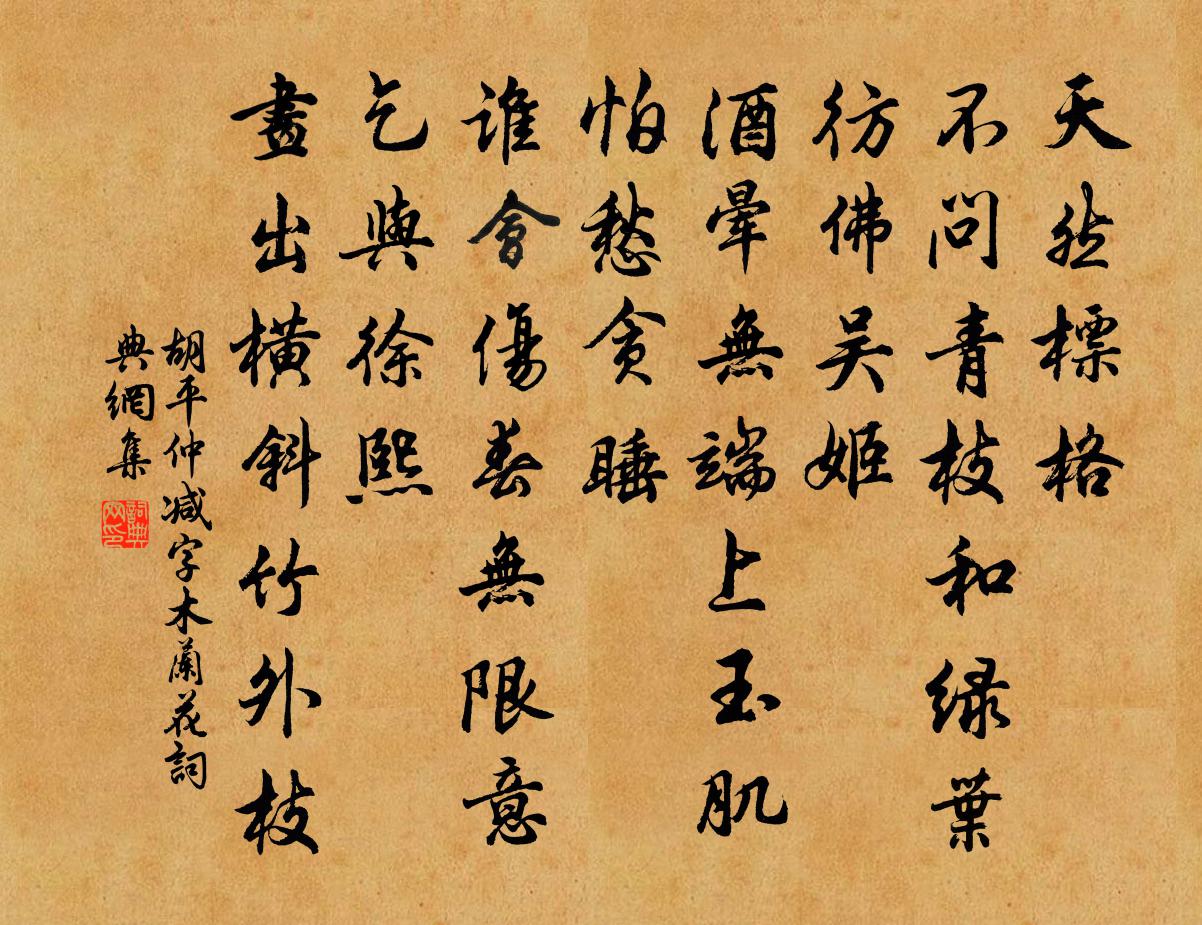 天然標格
不問青枝和绿葉
彷佛吴姬
酒暈無端上玉肌
怕愁贪睡
谁會傷春無限意
乞與徐熙
畫出横斜竹外枝
胡平仲减字木蘭花詞
典網集
詞典网印